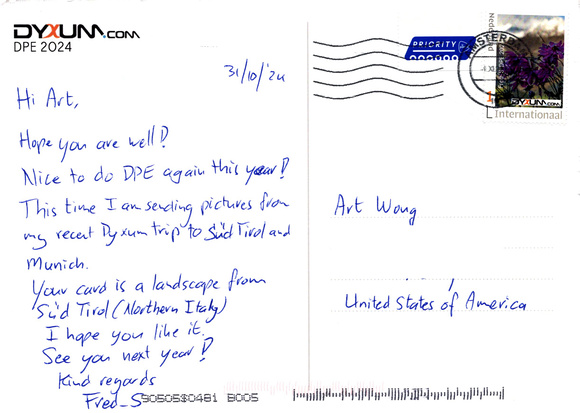 DYXUM.COM
DPE 2024
31/10/'24
Hi Art,
Hope you are well!
Nice to do DPE again this year!
This time I am sending pictures from
my recent Dyxum trip to Süd Tirol and
Munich.
Your card is a landscape from
Süd Tirol (Northern Italy)
I hope you like it.
See you next year!
Kind regards
Fred_S
90505$0481 B005
PRIORITY
DYXUM.COM
1
Internationaal
Art Wong
United States of America